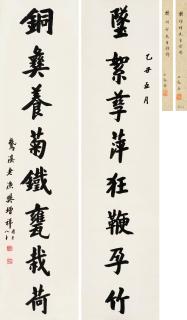 乙丑五月
墜絮孳萍狂鞭孕竹
銅彝養菊鐵甕栽荷
溪老漁樊增祥